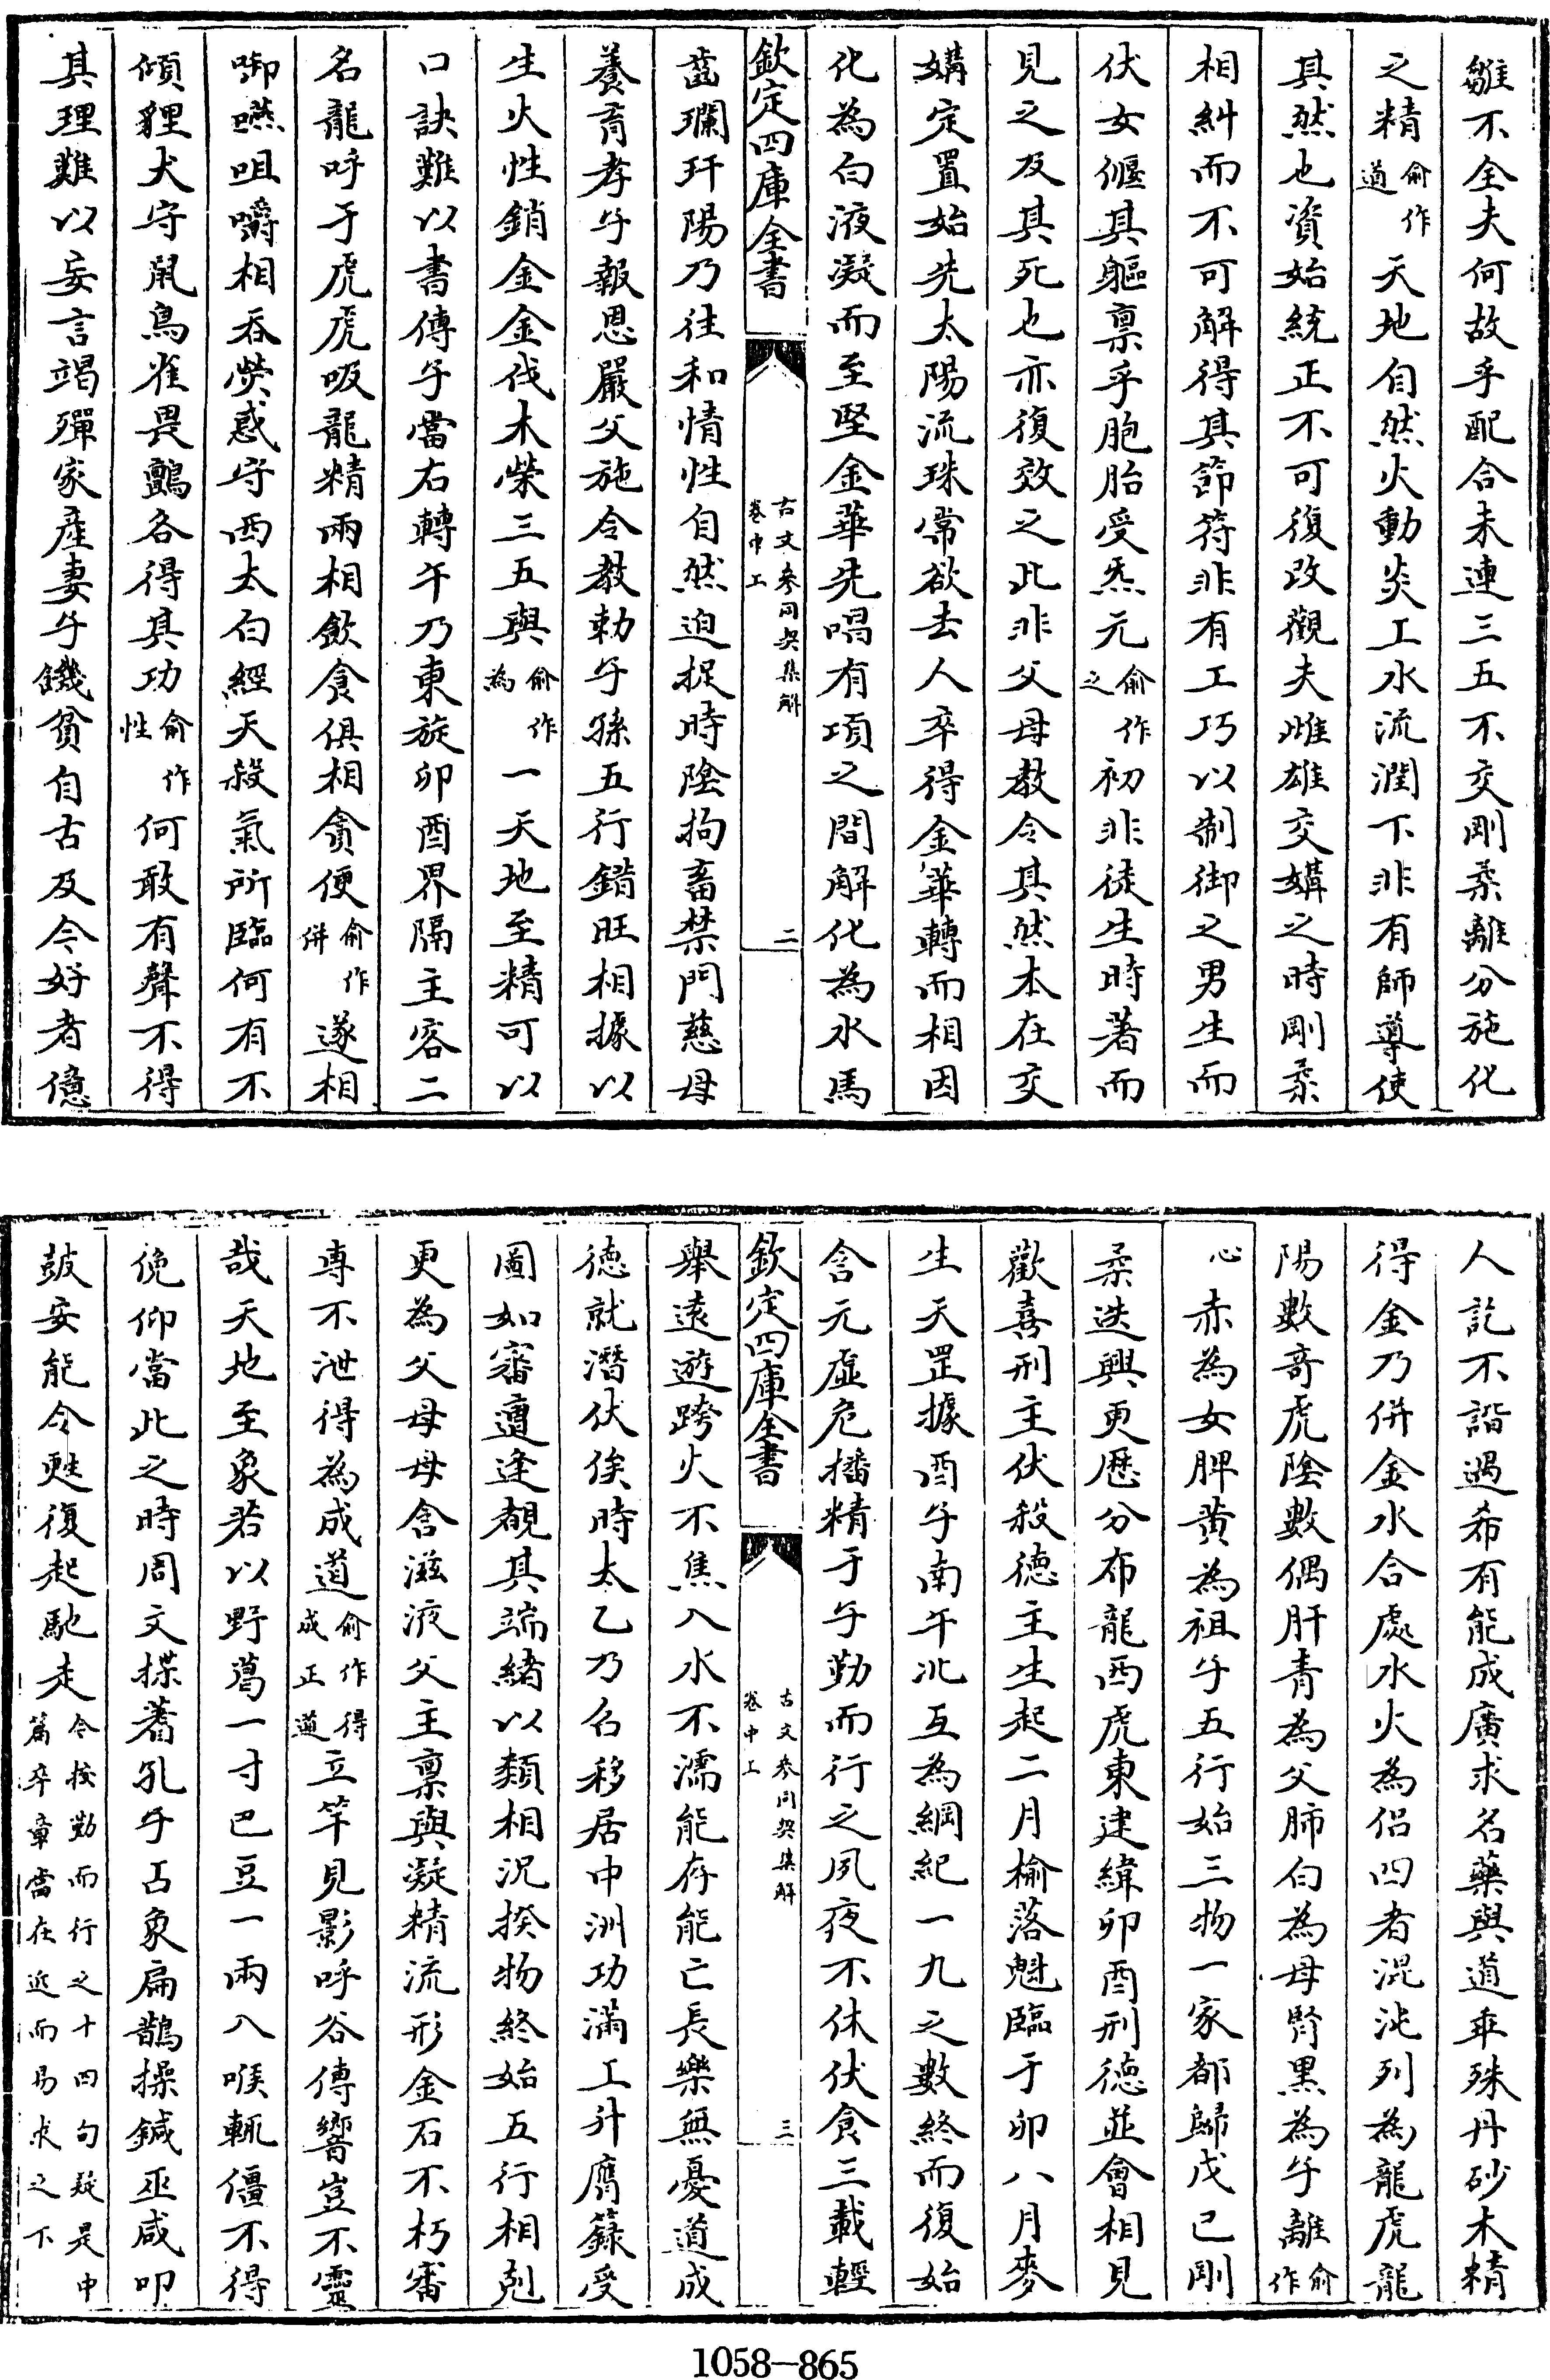 雛不全夫何故乎配合未連三五不交剛柔離分施化
之精俞作道天地自然火動炎上水流潤下非有師導使
其然也資始統正不可復改觀夫雌雄交媾之時剛柔
相糾而不可解得其節符非有工巧以制御之男生而
伏女偃其軀禀乎胞胎受炁元俞作之初非徒生時著而
見之及其死也亦復效之此非父母教令其然本在交
媾定置始先太陽流珠常欲去人卒得金華轉而相因
化為白液凝而至堅金華先唱有項之間解化為水馬
欽定四庫全書
古文參同契集解
卷中上
二
齒瓓玕陽乃往和情性自然迫捉時陰拘畜禁門慈母
養育孝子報恩嚴父施令教勅子孫五行錯旺相據以
生火性銷金金伐木榮三五與俞作為一天地至精可以
口訣難以書傳子當右轉午乃東旋卯酉界隔主客二
名龍呼于虎虎吸龍精兩相飲食俱相貪便俞作併遂相
啣嚥咀嚼相吞熒惑守西太白經天殺氣所臨何有不
傾貍犬守鼠鳥雀畏鸇各得其功俞作性何敢有聲不得
其理難以妄言竭殫家產妻子饑貧自古及今好者億
人訖不諧遇希有能成廣求名藥與道乖殊丹砂木精
得金乃併金水合處水火為侣四者混沌列為龍虎龍
陽數奇虎陰數偶肝青為父肺白為母腎黑為子離俞作
心赤為女脾黄為祖子五行始三物一家都歸戊己剛
柔迭興更歷分布龍西虎東建緯卯酉刑德並會相見
歡喜刑主伏殺德主生起二月榆落魁臨于卯八月麥
生天罡據酉子南午北互為綱紀一九之數終而復始
含元虚危播精于子勤而行之夙夜不休伏食三載輕
欽定四庫全書
古文參同契集解
卷中上
三
舉遠遊跨火不焦入水不濡能存能亡長樂無憂道成
德就潛伏俟時太乙乃召移居中洲功滿上升膺籙受
圖如審遭逢覩其端緒以類相況揆物終始五行相剋
更為父母母含滋液父主禀與凝精流形金石不朽審
專不泄得為成道俞作得成正道立竿見影呼谷傳響豈不靈
哉天地至象若以野葛一寸巴豆一兩入喉輒僵不得
俛仰當此之時周文揲蓍孔子占象扁鵲操鍼巫咸叩
鼓安能令甦復起馳走今按勤而行之十四句疑是中篇卒章當在近而易求之下
1058-865